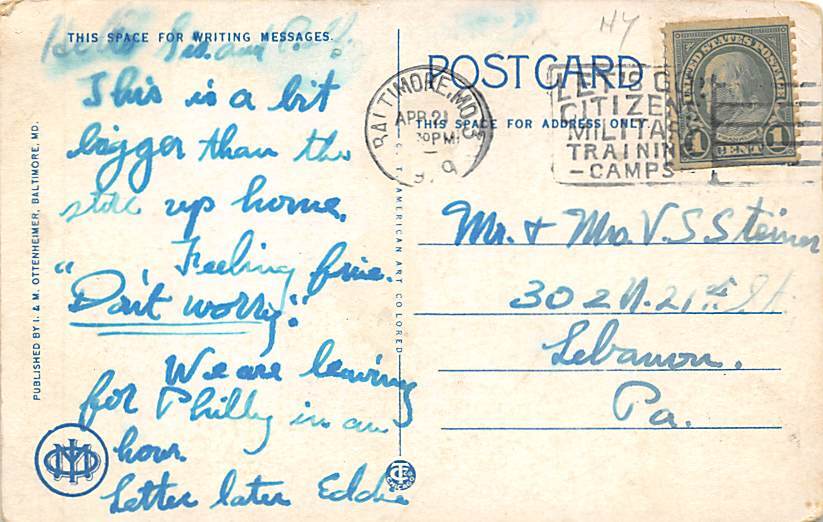 THIS SPACE FOR WRITING MESSAGES.
Hello
This is a bit
bigger than the
store up home.
Feeling fine.
"Don't worry."
We are leaving
for Philly in an
hour.
Letter later Eddie
PUBLISHED BY I. & M. OTTENHEIMER, BALTIMORE, MD.
C. T. AMERICAN ART COLORED
POST CARD
THIS SPACE FOR ADDRESS ONLY
BALTIMORE, MD.
APR 21
30PM
LET'S GO
CITIZENS
MILITARY
TRAINING
-CAMPS
UNITED STATES POSTAGE
1 CENT 1
Mr. & Mrs. V. S Steiner
302 N. 21st St.
Lebanon.
Pa.
CHICAGO